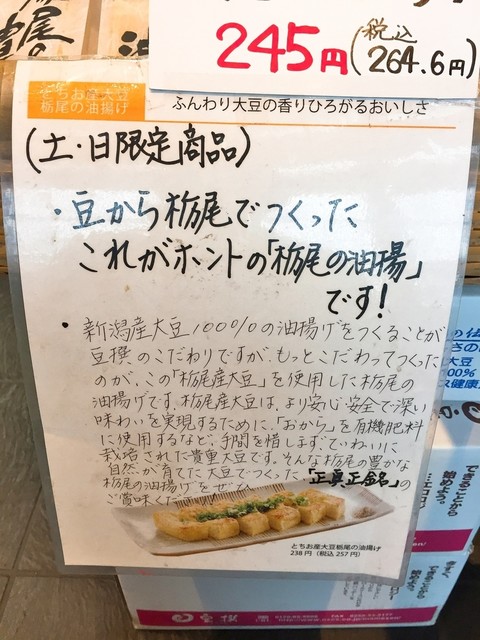 245円(税込264.6円)
とちお産大豆
栃尾の油揚げ
ふんわり大豆の香りひろがるおいしさ
(土・日限定商品)
・豆から栃尾でつくった
これがホントの「栃尾の油揚」
です!
・新潟産大豆100%の油揚げをつくることが
豆撰のこだわりですが、もっとこだわってつくった
のが、この「栃尾産大豆」を使用した栃尾の
油揚げです。栃尾産大豆は、より安心安全で深い
味わいを実現するために、「おから」を有機肥料
に使用するなど、手間を惜しまず、ていねいに
栽培された貴重大豆です。そんな栃尾の豊かな
自然が育てた大豆でつくった「正真正銘」の
栃尾の油揚げをぜひ
ご賞味くだ
とちお産大豆栃尾の油揚げ
238円(税込257円)
大豆
100%
できることから
始めよう。